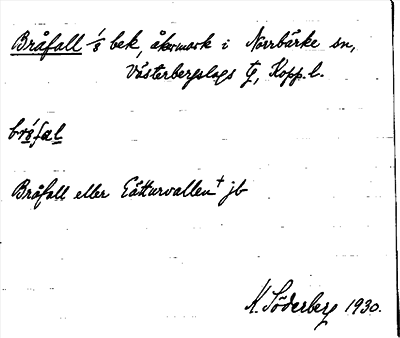 Bråfall 1/8 bek, åkermark i Norrbärke sn,
Västerbergslags tg, Kopp. l.
bråfal
Bråfall eller Tåtturvallen† jb
K. Söderberg 1930.